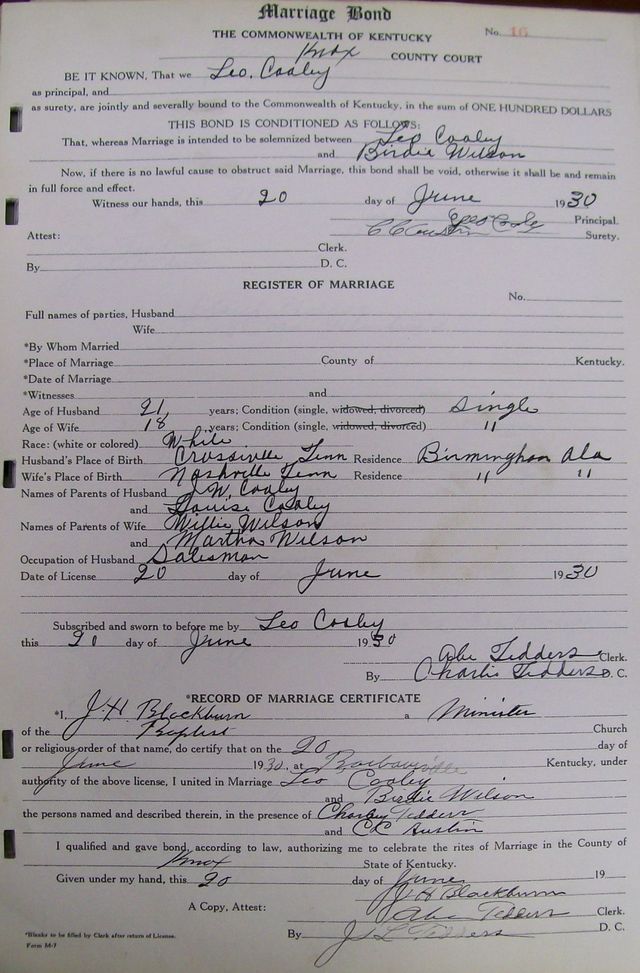 Marriage Bond
THE COMMONWEALTH OF KENTUCKY No. 16
Knox COUNTY COURT
BE IT KNOWN, That we Leo. Cooley
as principal, and
as surety, are jointly and severally bound to the Commonwealth of Kentucky, in the sum of ONE HUNDRED DOLLARS
THIS BOND IS CONDITIONED AS FOLLOWS:
That, whereas Marriage is intended to be solemnized between Leo Cooley
and Birdie Wilson
Now, if there is no lawful cause to obstruct said Marriage, this bond shall be void, otherwise it shall be and remain
in full force and effect.
Witness our hands, this 20 day of June 1930
Principal.
CC Austin Surety.
Attest:
Clerk.
By D. C.
REGISTER OF MARRIAGE
No.
Full names of parties, Husband
Wife
*By Whom Married
*Place of Marriage County of Kentucky.
*Date of Marriage
*Witnesses and
Age of Husband 21, years; Condition (single, widowed, divorced) Single
Age of Wife 18 years; Condition (single, widowed, divorced) "
Race: (white or colored) White
Husband's Place of Birth Crossville Tenn Residence Birmingham Ala
Wife's Place of Birth Nashville Tenn Residence " "
Names of Parents of Husband J.W. Cooley
and Louise Cooley
Names of Parents of Wife Willie Wilson
and Martha Wilson
Occupation of Husband Salesman
Date of License 20 day of June 1930
Subscribed and sworn to before me by Leo Cooley
this 20 day of June 1930
Abe Tedders Clerk.
By Charlie Tedders D. C.
*RECORD OF MARRIAGE CERTIFICATE
*I, J.H Blackburn a Minister
of the Baptist Church
or religious order of that name, do certify that on the 20 day of
June 1930, at Barbourville Kentucky, under
authority of the above license, I united in Marriage Leo Cooley
and Birdie Wilson
the persons named and described therein, in the presence of Charley Tedders
and CC Austin
I qualified and gave bond, according to law, authorizing me to celebrate the rites of Marriage in the County of
Knox State of Kentucky.
Given under my hand, this 20 day of June 19
J H Blackburn
A Copy, Attest: Abe Tedders Clerk.
By J L Tedders D. C.
*Blanks to be filled by Clerk after return of License.
Form M-7